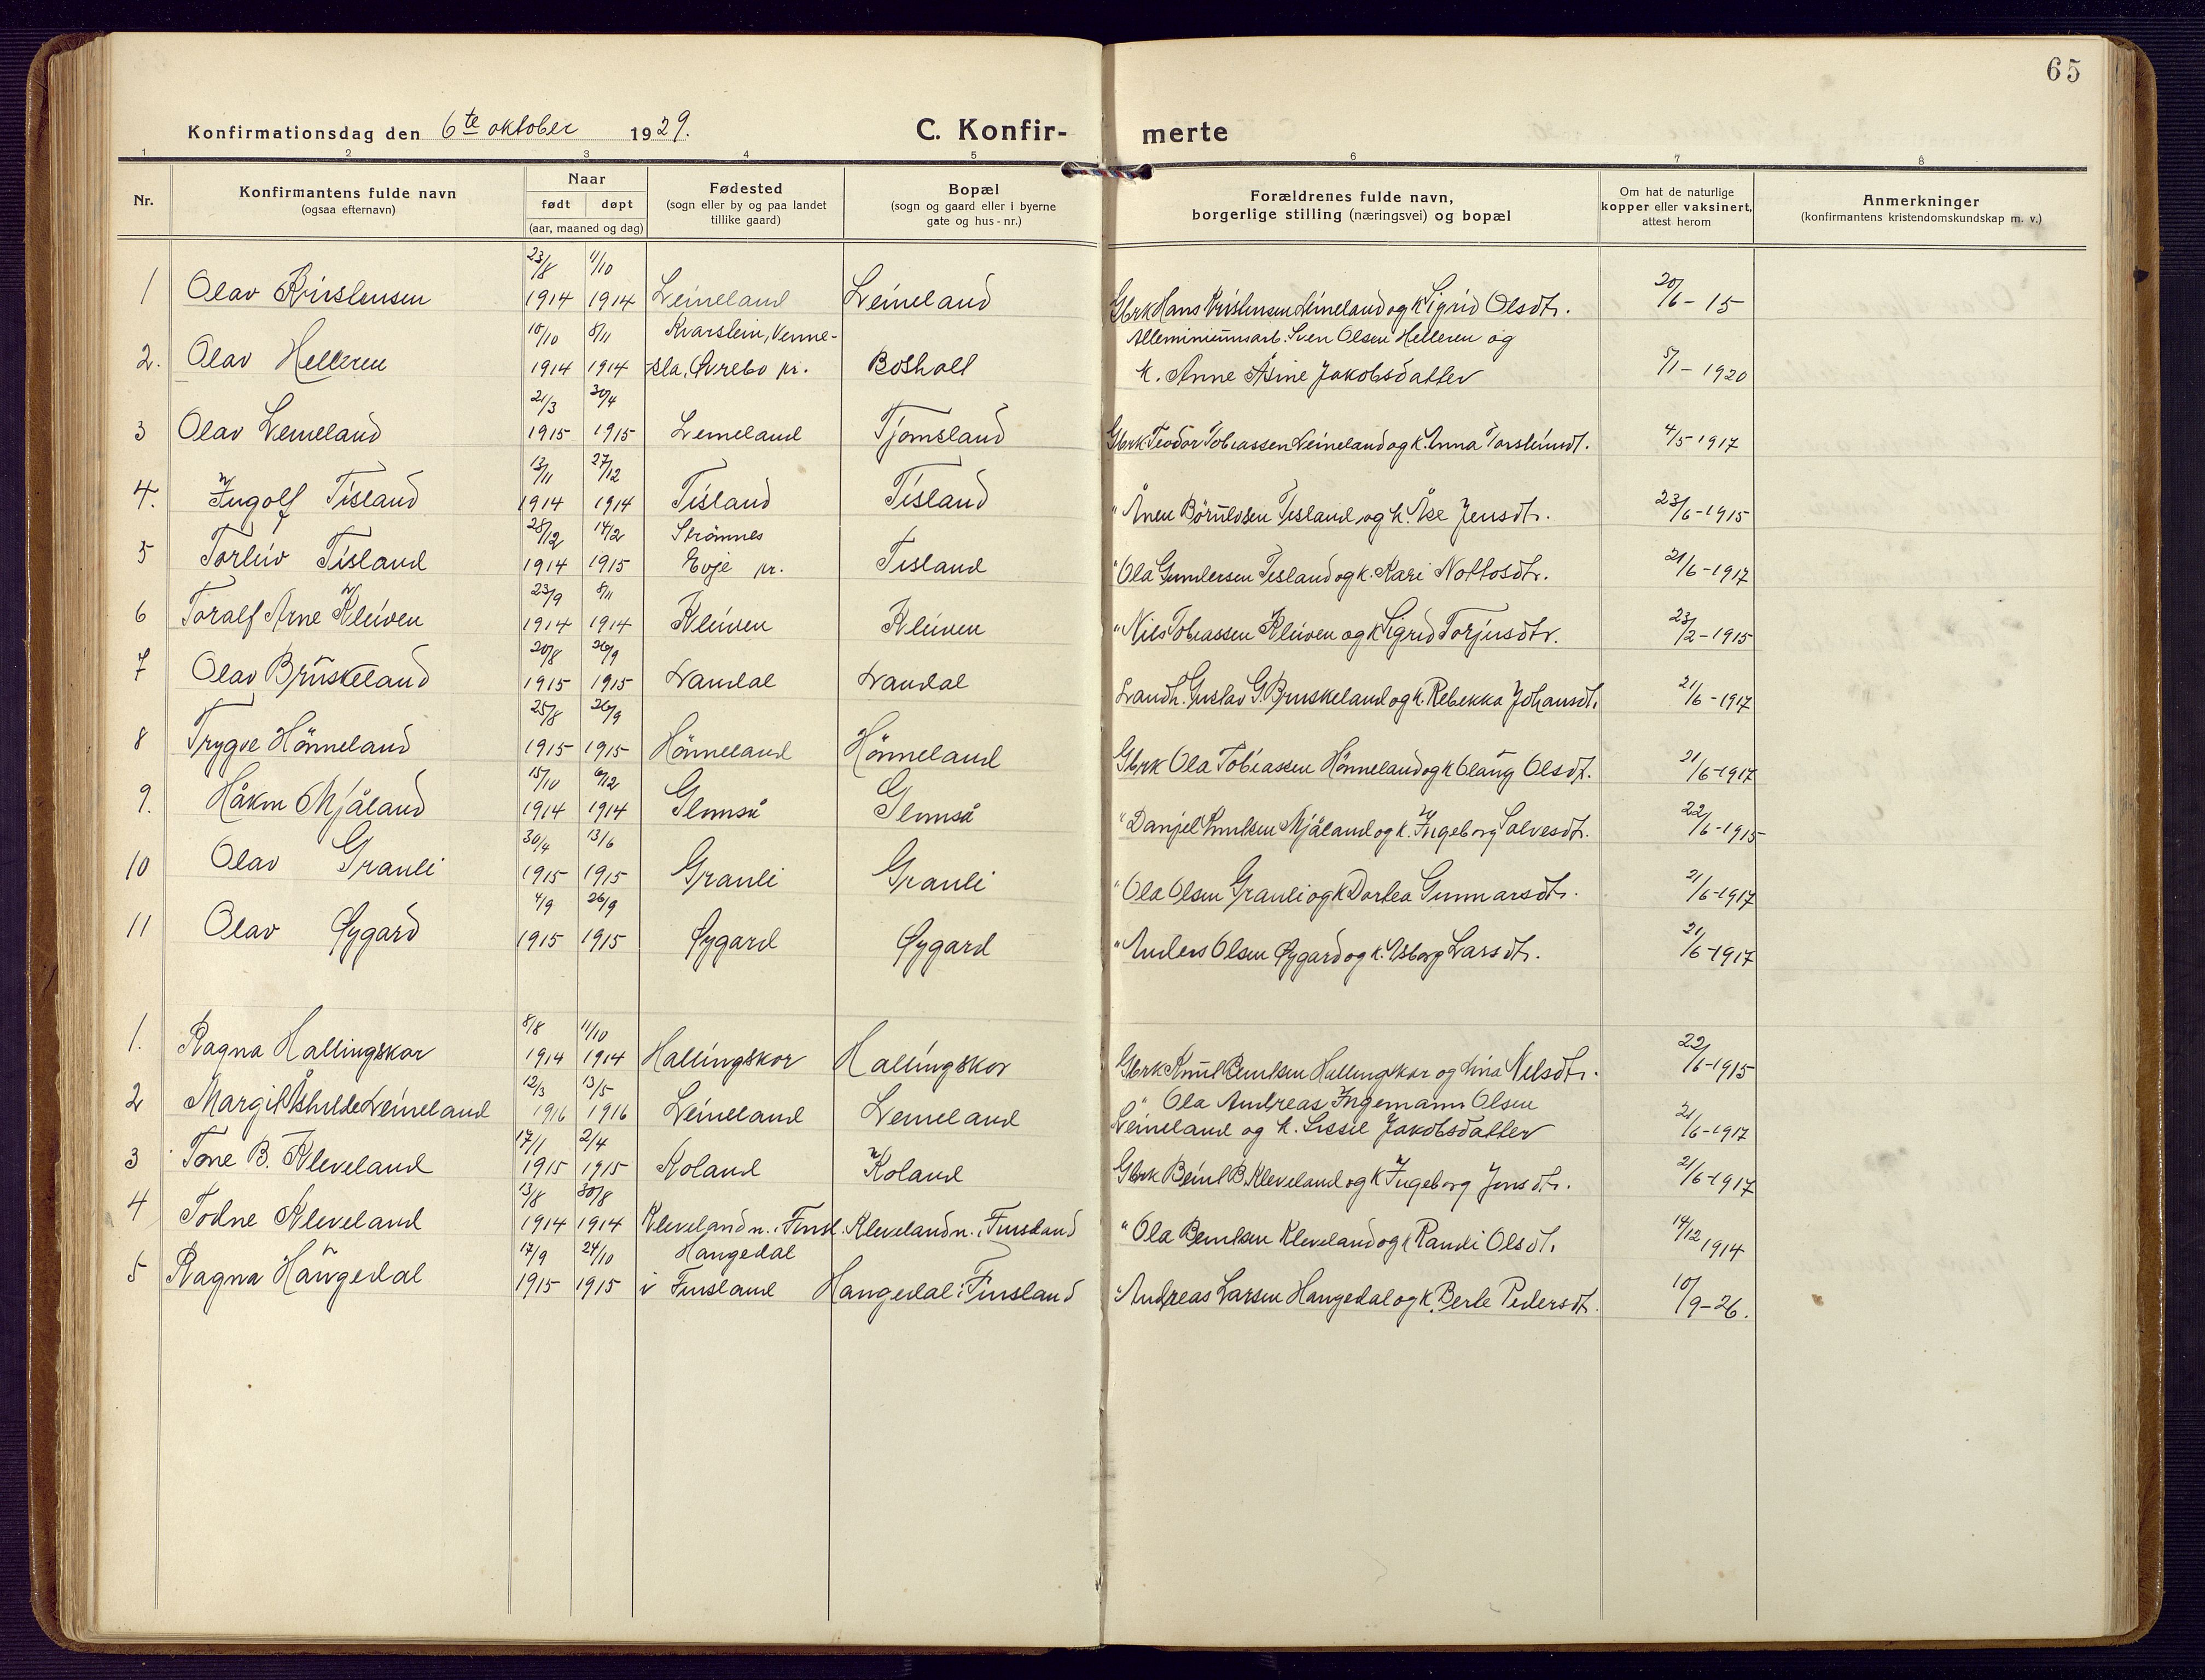 65
Konfirmationsdag den 6te oktober 1929.
C. Konfir- merte
1 2 3 4 5 6 7 8
Nr.
Konfirmantens fulde navn
(ogsaa efternavn)
Naar
født døpt
(aar, maaned og dag)
Fødested
(sogn eller by og paa landet
tillike gaard)
Bopæl
(sogn og gaard eller i byerne
gate og hus-nr.)
Forældrenes fulde navn,
borgerlige stilling (næringsvei) og bopæl
Om hat de naturlige
kopper eller vaksinert,
attest herom
Anmerkninger
(konfirmantens kristendomskundskap m. v.)
23/8 11/10
1 Olav Kristensen 1914 1914 Leineland Leineland Gbrk Hans Kristensen Leineland og k Sigrid Olsdtr. 20/6-15
10/10 8/11 Kvarstein, Venne- Alleminiumsarb. Sven Olsen Helleren og
2. Olav Helleren 1914 1914 sla, Øvrebo pr. Bosholt k. Anne Åsine Jakobsdatter 5/1-1920
21/3 30/4
3 Olav Leineland 1915 1915 Leineland Tjomsland Gbrk Teodor Tobiassen Leineland og k. Anna Torsteinsdt. 4/5-1917
13/11 27/12
4. Ingolf Tisland 1914 1914 Tisland Tisland " Ånen Börulvsen Tisland og k. Åse Jensdtr. 23/6-1915
28/12 14/2 Strømnes
5 Torleiv Tisland 1914 1915 Evje pr. Tisland " Ola Gundersen Tisland og k. Kari Nottosdtr. 21/6-1917
23/9 8/11
6 Toralf Arne Kleiven 1914 1914 Kleiven Kleiven " Nils Tobiassen Kleiven og k Sigrid Torjusdtr. 23/2-1915
20/8 26/9
7 Olav Bruskeland 1915 1915 Laudal Laudal Landh. Gustav G. Bruskeland og k. Rebekka Johansdt. 21/6-1917
25/8 26/9
8 Trygve Hönneland 1915 1915 Hönneland Hönneland Gbrk Ola Tobiassen Hönneland og k Olaug Olsdt. 21/6-1917
15/10 6/12
9. Håkon Mjåland 1914 1914 Glomså Glomså " Danjel Knutsen Mjåland og k. Ingeborg Salvesdt. 22/6-1915
30/4 13/6
10 Olav Grauli 1915 1915 Grauli Grauli " Ola Olsen Grauli og k Dortea Gunnarsdtr. 21/6-1917
4/9 26/9
11 Olav Øygard 1915 1915 Øygard Øygard " Anders Olsen Øygard og k. Asborg Larsdtr. 21/6-1917
8/8 11/10
1. Ragna Hallingskar 1914 1914 Hallingskar Hallingskar Gbrk Knut Bentsen Hallingskar og Lina Nilsdtr. 22/6-1915
12/3 13/5 " Ola Andreas Ingemann Olsen
2 Margit Åshilde Leineland 1916 1916 Leineland Leineland Leineland og k. Sissel Jakobsdatter 21/6-1917
17/1 2/4
3 Tone B. Kleveland 1915 1915 Koland Koland Gbrk Beint B. Kleveland og k Ingeborg Jonsdtr. 21/6-1917
13/8 30/8
4 Todne Kleveland 1914 1914 Kleveland n. i Finsl. Kleveland n. i Finsland " Ola Bentsen Kleveland og k Randi Olsdt. 14/12 1914
17/9 24/10 Haugedal
5 Ragna Haugedal 1915 1915 i Finsland Haugedal i Finsland " Andreas Larsen Haugedal og k. Berte Pedersdt. 10/9-26.